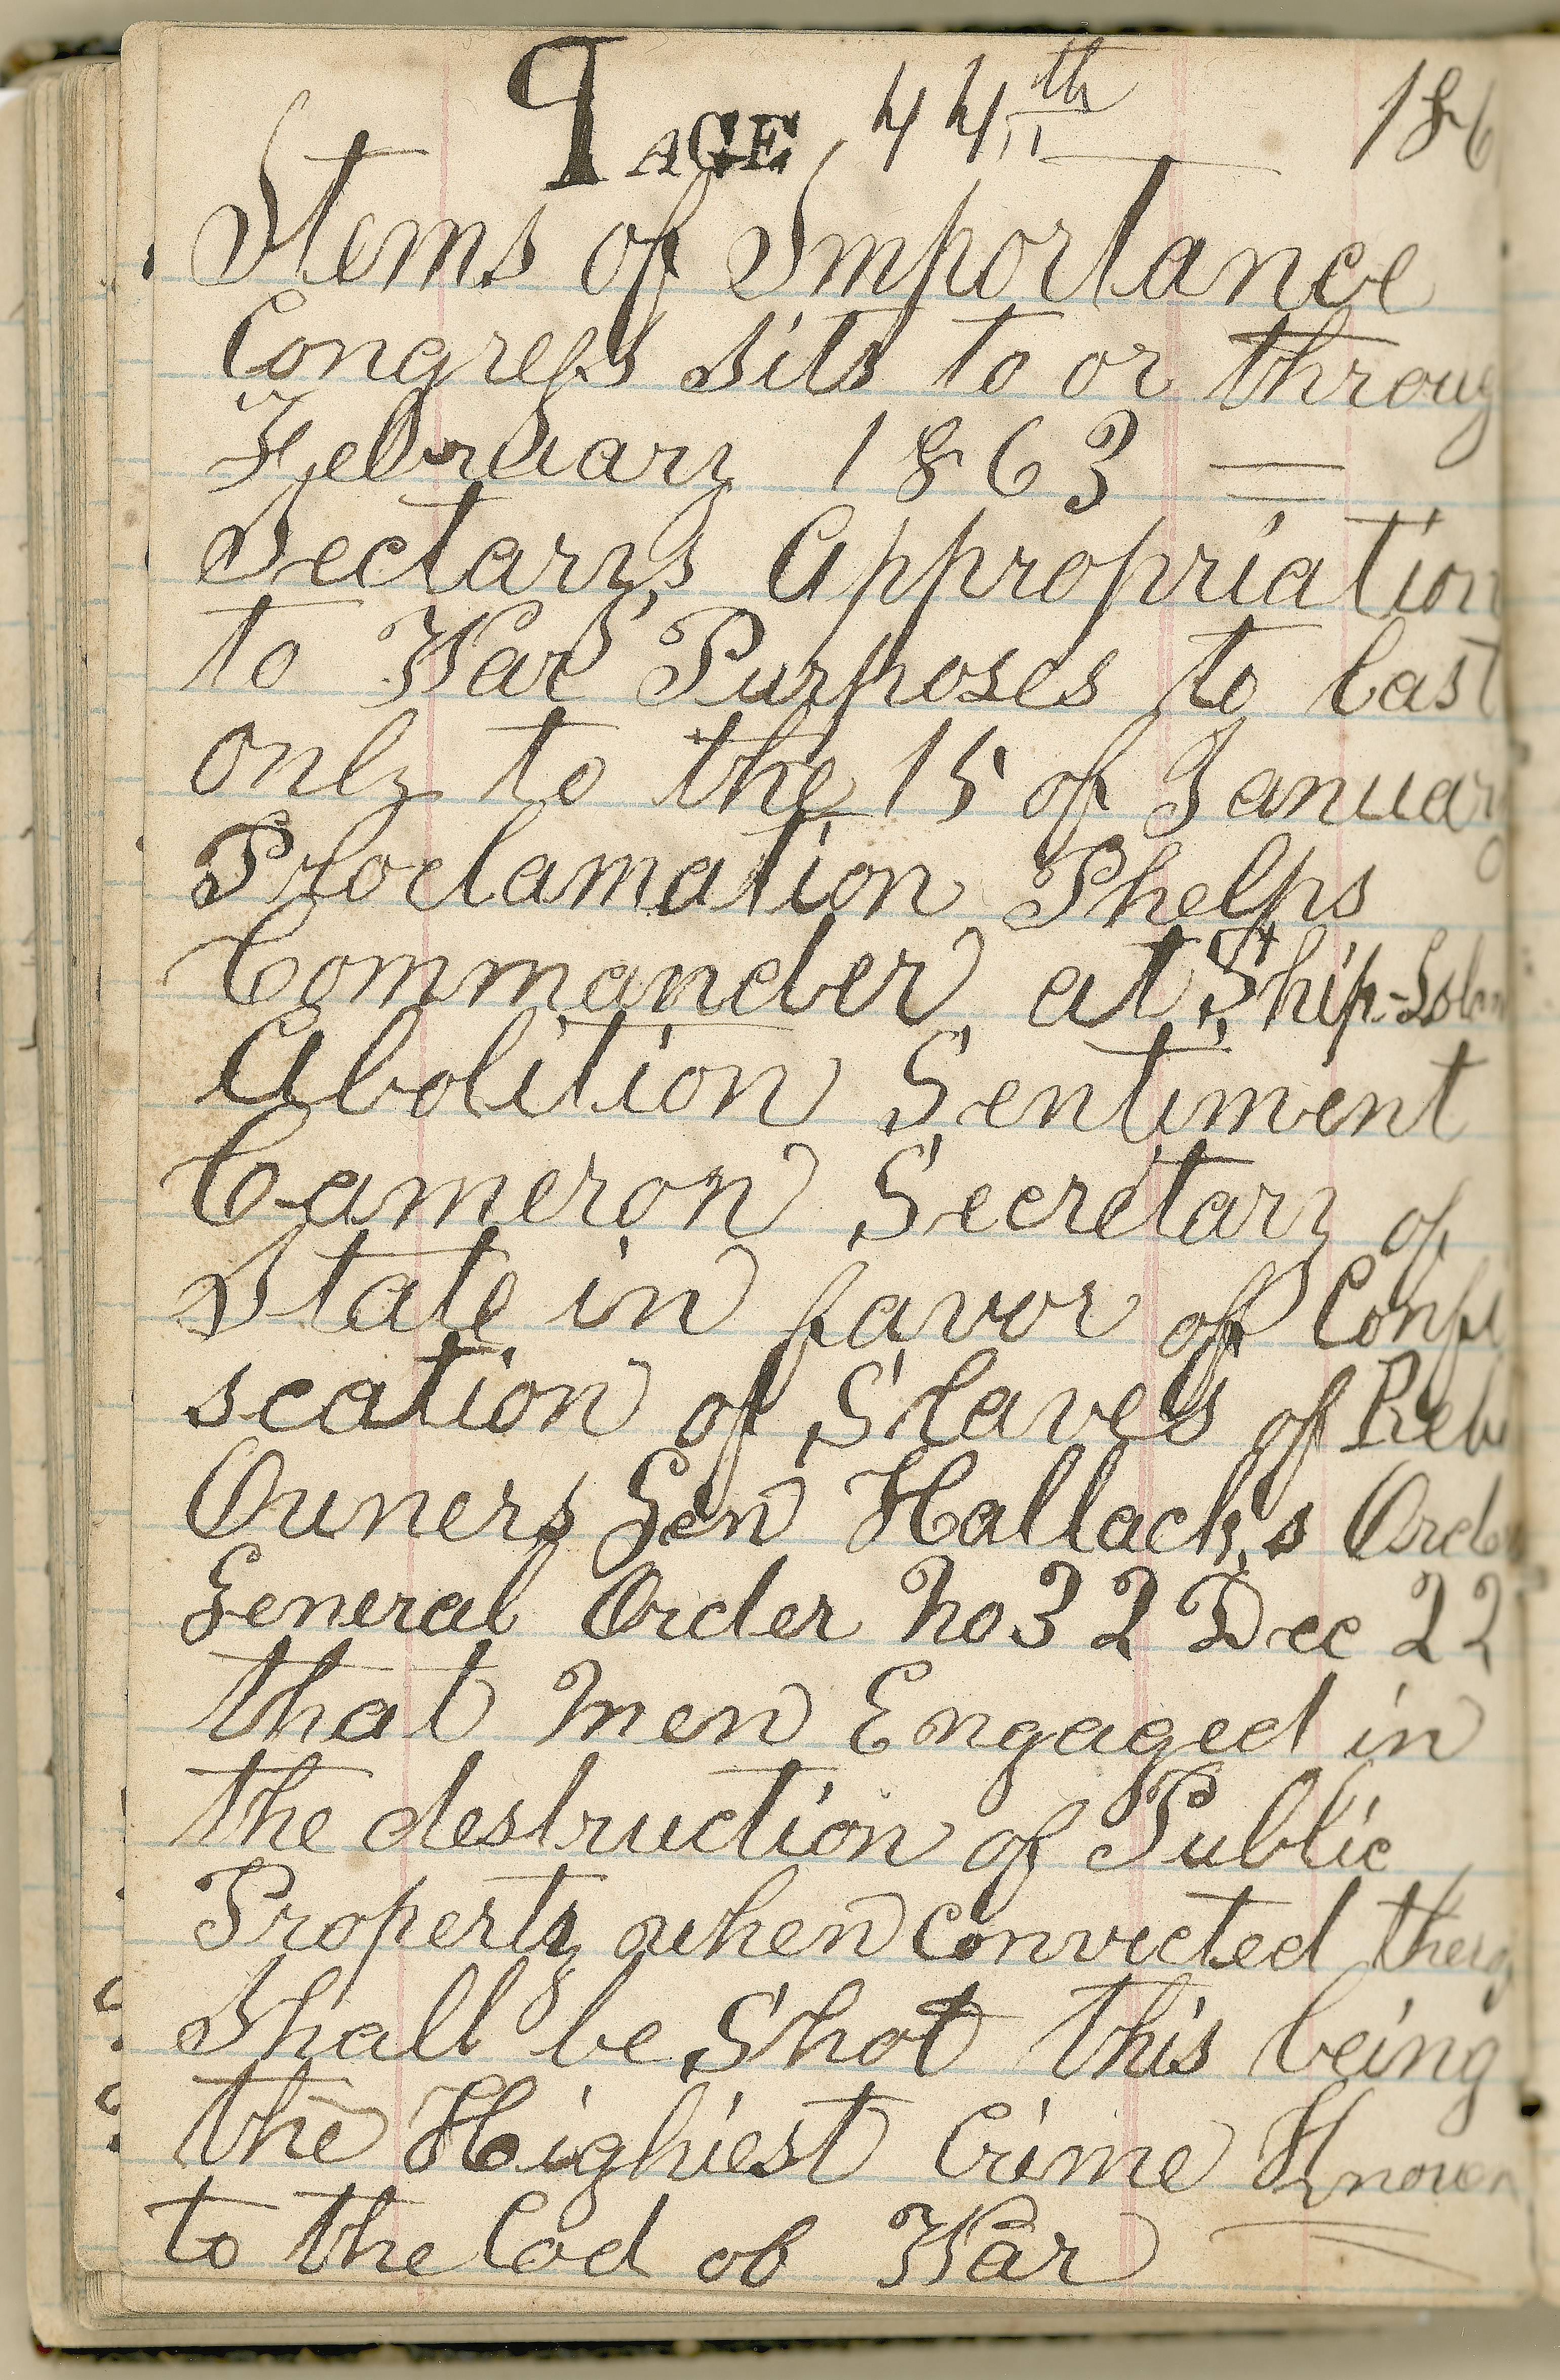 PAGE, 44th 186
Items of Importance
Congress sits to or throug
February 1863 —
Sectary,s Appropriation
to War Purposes to last
only to the 15 of January
Proclamation Phelps
Commander at Ship-Islan
Abolition Sentiment
Cameron Secretary of
State in favor of Confi
scation of Slaves of Reb
Owners Gen Hallack,s Order
General Order No 32 Dec 22
that men Engaged in
the destruction of Public
Property when Convicted therof
Shall be Shot this being
the Highiest Crime Known
to the Cod of War